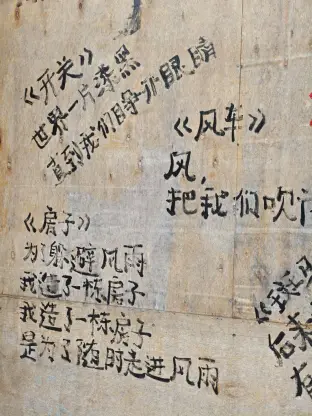 《开关》
世界一片漆黑
直到我们睁开眼睛
《风车》
风,
把我们吹
《房子》
为躲避风雨
我造了一栋房子
我造了一栋房子
是为了随时走进风雨
《斑
后来